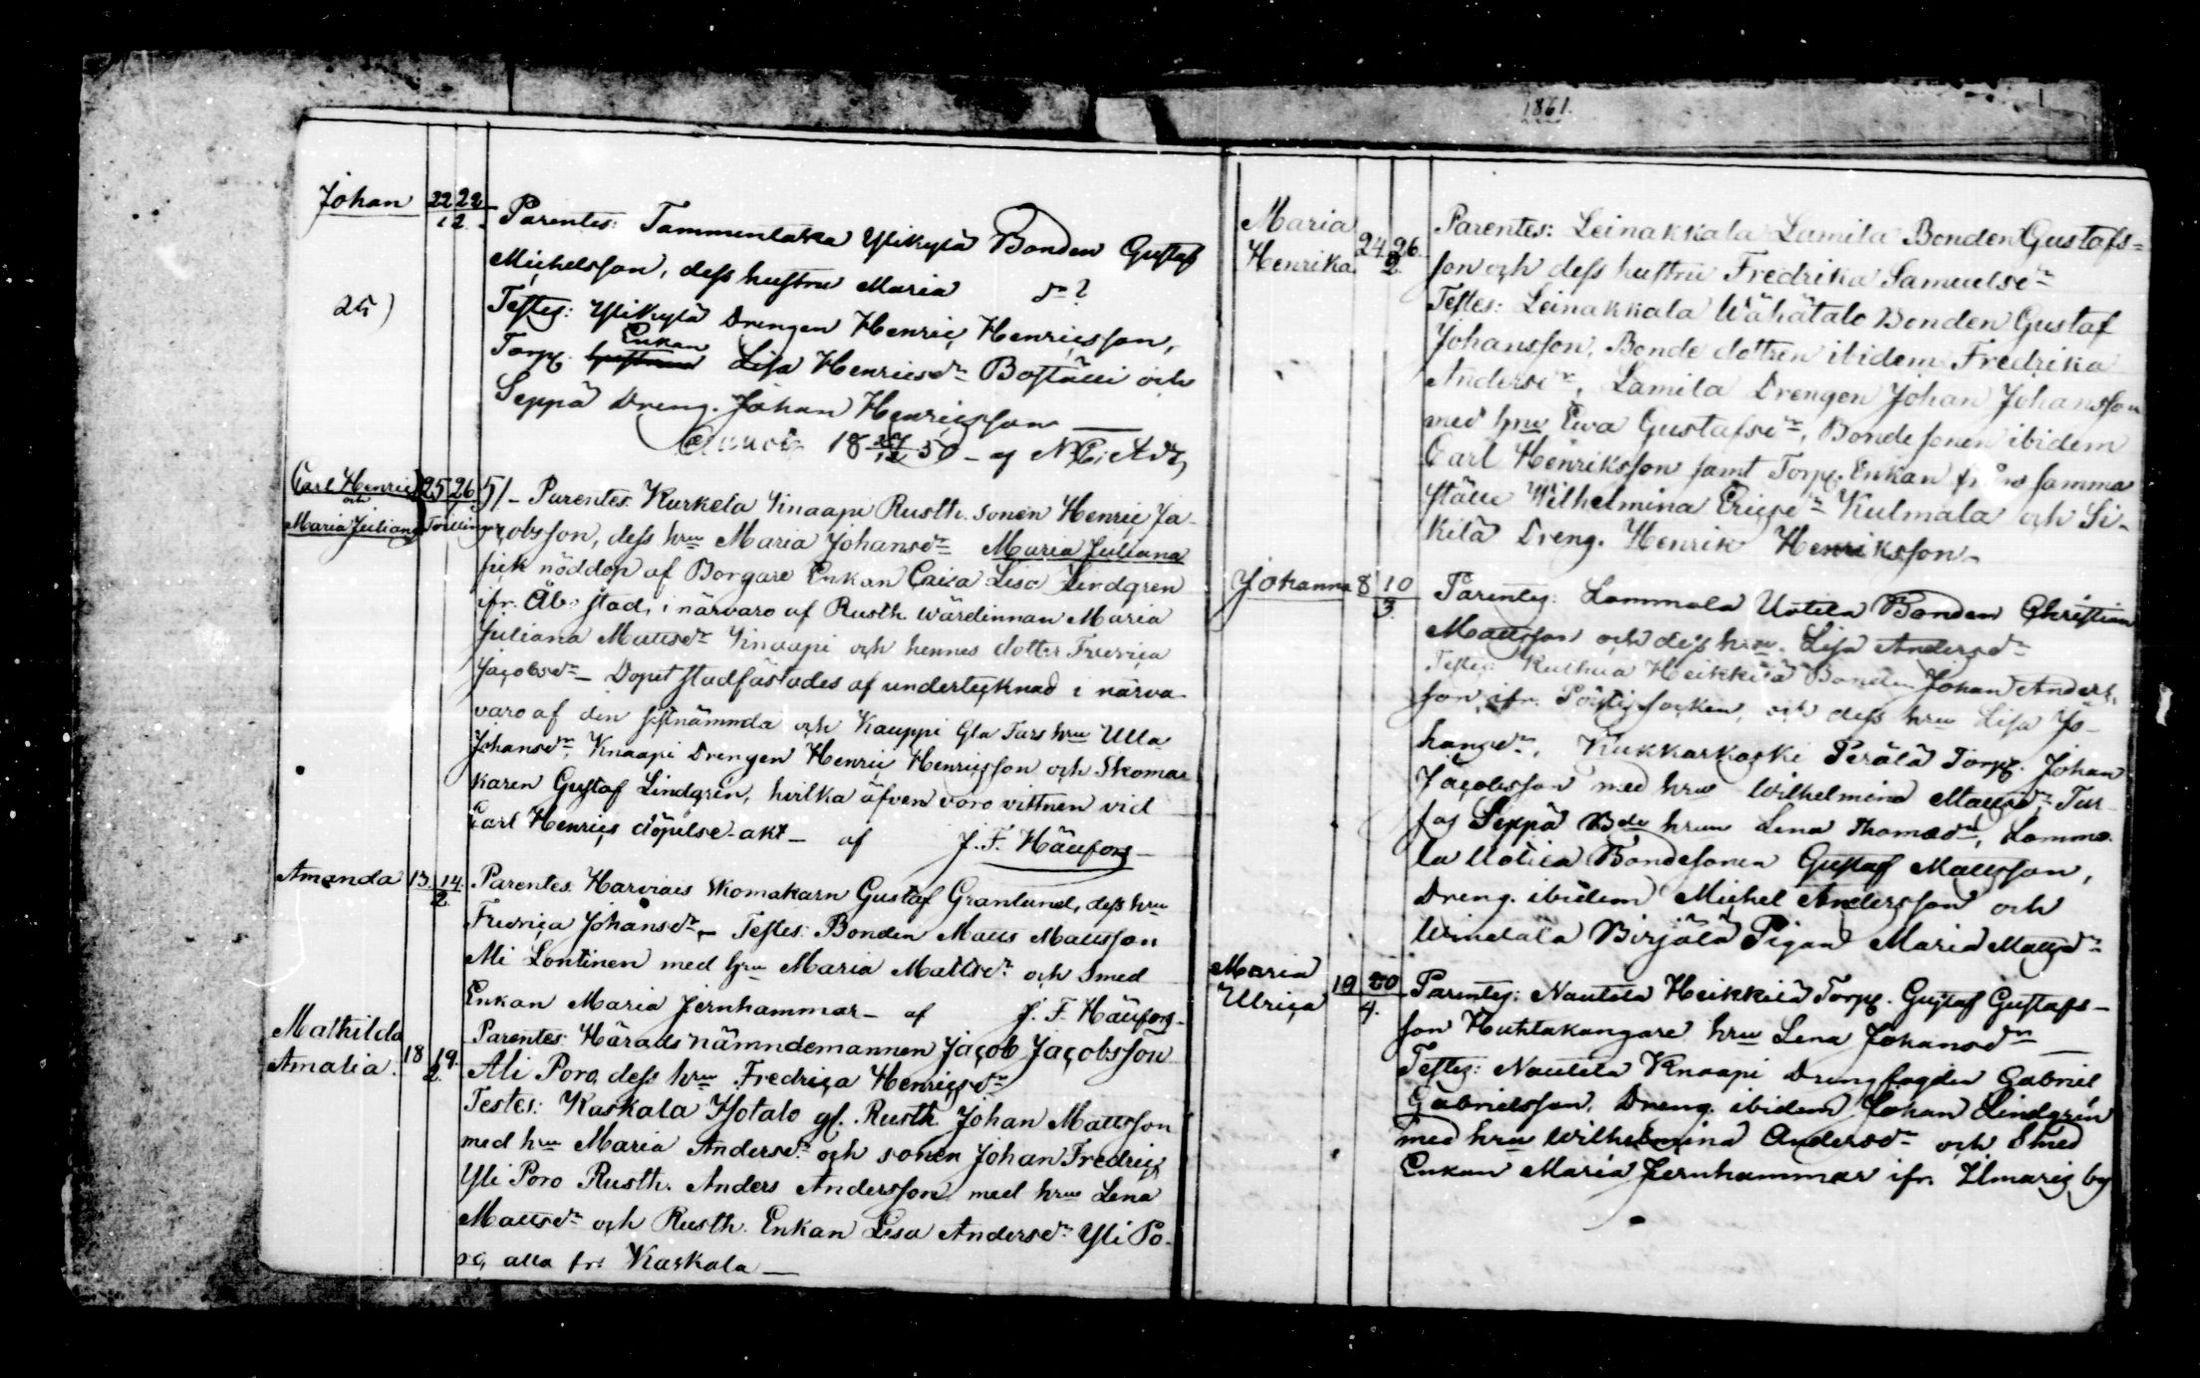 1861.
Johan 22 22/12. Parentes: Tammenlaka Ylikylä Bonden Gustaf
Michelsson, dess hustru Maria dr ?
25) Testes: Ylikylä Drengen Henric Henricsson,
Enkan
Torp. Lisa Henricsdr och
Seppä Dreng. Johan Henricsson
18 27/12 50 - af
Carl Henric och Maria Juliana Tvillingar 25 26/1 51 - Parentes. Kurkela Knaapi Rusth. sonen Henric Ja-
cobsson, dess hru Maria Johansdr Maria Juliana
fick nöddop af Borgare Enkan Caisa Lisa Lindgren
ifr. Åbo stad, i närvaro af Rusth. wärdinnan Maria
Juliana Mattsdr Knaapi och hennes dotter Fredrica
Jacobsdr - Dopet stadfästades af undertecknad i närva-
varo af den sistnämnda och Kauppi Gla Turs hru Ulla
Johansdr, Knaapi Drengen Henric Henricsson och Skoma-
karen Gustaf Lindgrén, hvilka äfven voro vittnen vid
Carl Henrics döpelse-akt - af J. F. Häufors -
Amanda 13. 14./2. Parentes. Harviais Skomakarn Gustaf Granlund, dess hru
Fredrica Johansdr - Testes: Bonden Matts Mattsson
Ali Lontinen med hru Maria Mattsdr och Smed
Enkan Maria Jernhammar - af J. F. Häufors -
Mathilda Amalia. 18 19./2. Parentes: Härads nämndemannen Jacob Jacobsson
Ali Poro, dess hru Fredrica Henricsdr
Testes: Kaskala Isotalo gl. Rusth. Johan Mattsson
med hru Maria Andersdr och sonen Johan Fredric,
Yli Poro Rusth. Anders Andersson med hru Lena
Mattsdr och Rusth. Enkan Lisa Andersdr Yli Po-
ro, alla fr: Kaskala -
Maria Henrika. 24 26./2. Parentes: Leinakkala Lamila Bonden Gustafs-
son och dess hustru Fredrika Samuelsdr
Testes: Leinakkala Wähätalo Bonden Gustaf
Johansson, Bonde dottren ibidem Fredrika
Andersdr, Lamila Drengen Johan Johansson
med hru Ewa Gustafsdr, Bondesonen ibidem
Carl Henriksson samt Torp. Enkan från samma
ställe Wilhelmina Ericsdr Kulmala och Si-
kilä Dreng. Henrik Henriksson -
Johanna 8 10/3. Parentes: Lammala Uotila Bonden Christian
Mattsson och dess hru. Lisa Andersdr
Testes: Heikkilä Bonden Johan Anders-
son ifr. Pöytis socken, och dess hru Lisa Jo-
hansdr, Kukkarkoski Perälä Torp. Johan
Jacobsson med hru Wilhelmina Mattsdr, Tur-
Seppä Bde hrun Lena Thomasdr, Lamma-
la Uotila Bondesonen Gustaf Mattsson,
Dreng. ibidem Michel Andersson och
Pigan Maria Mattsdr
Maria Ulrica 19 20/4. Parentes: Nautela Heikkilä Torp. Gustaf Gustafs-
son Huhtakangare hru Lena Johansdr -
Testes: Nautela Knaapi Drengfogden Gabriel
Gabrielsson, Dreng. ibidem Johan Lindgrén
med hru Wilhelmina Andersdr och Smed
Enkan Maria Jernhammar ifr. Ilmaris by